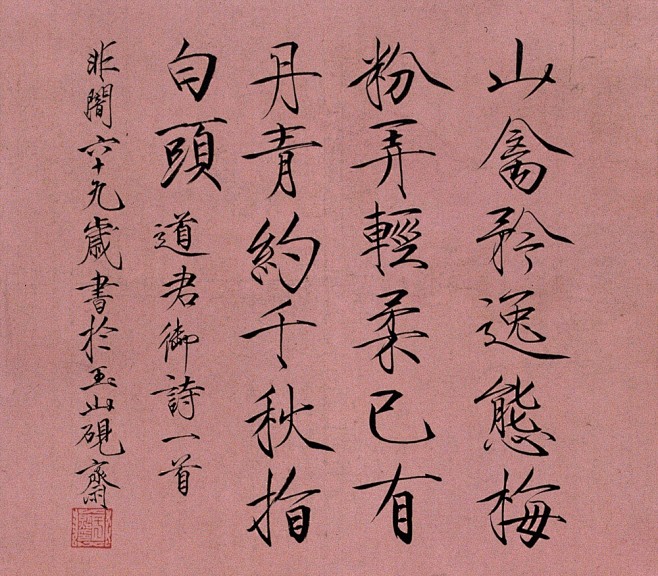 山禽矜逸態梅
粉弄輕柔已有
丹青約千秋指
白頭道君御詩一首
非闇六十九歲書於玉山硯齋